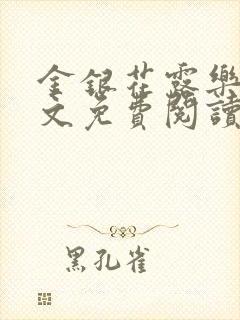 金銀花露樂
文免費閱讀
黑孔雀